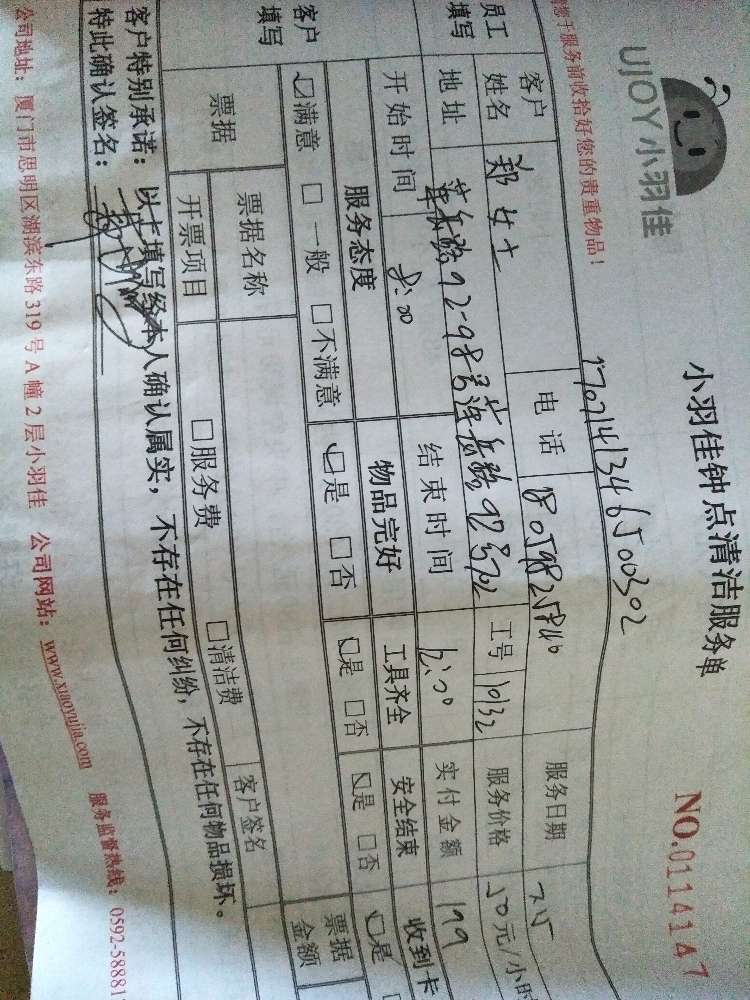 UJOY小羽佳
小羽佳钟点清洁服务单
NO.0114147
于服务前收拾好您的贵重物品！
员工填写
客户姓名 郑女士 电话 服务日期
地址 工号 1032 服务价格 50元/小时
开始时间 8:00 结束时间 12:00 实付金额 199
客户填写
服务态度 物品完好 工具齐全 安全结束 收到卡
满意 一般 不满意 是 否 是 否 是 否 是
票据 票据名称 客户签名 票据金额
开票项目 服务费 清洁费
客户特别承诺：以上填写经本人确认属实，不存在任何纠纷，不存在任何物品损坏。
特此确认签名：
公司地址：厦门市思明区湖滨东路319号A幢2层小羽佳 公司网站：www.xiaoyujia.com 服务监督热线：0592-58881